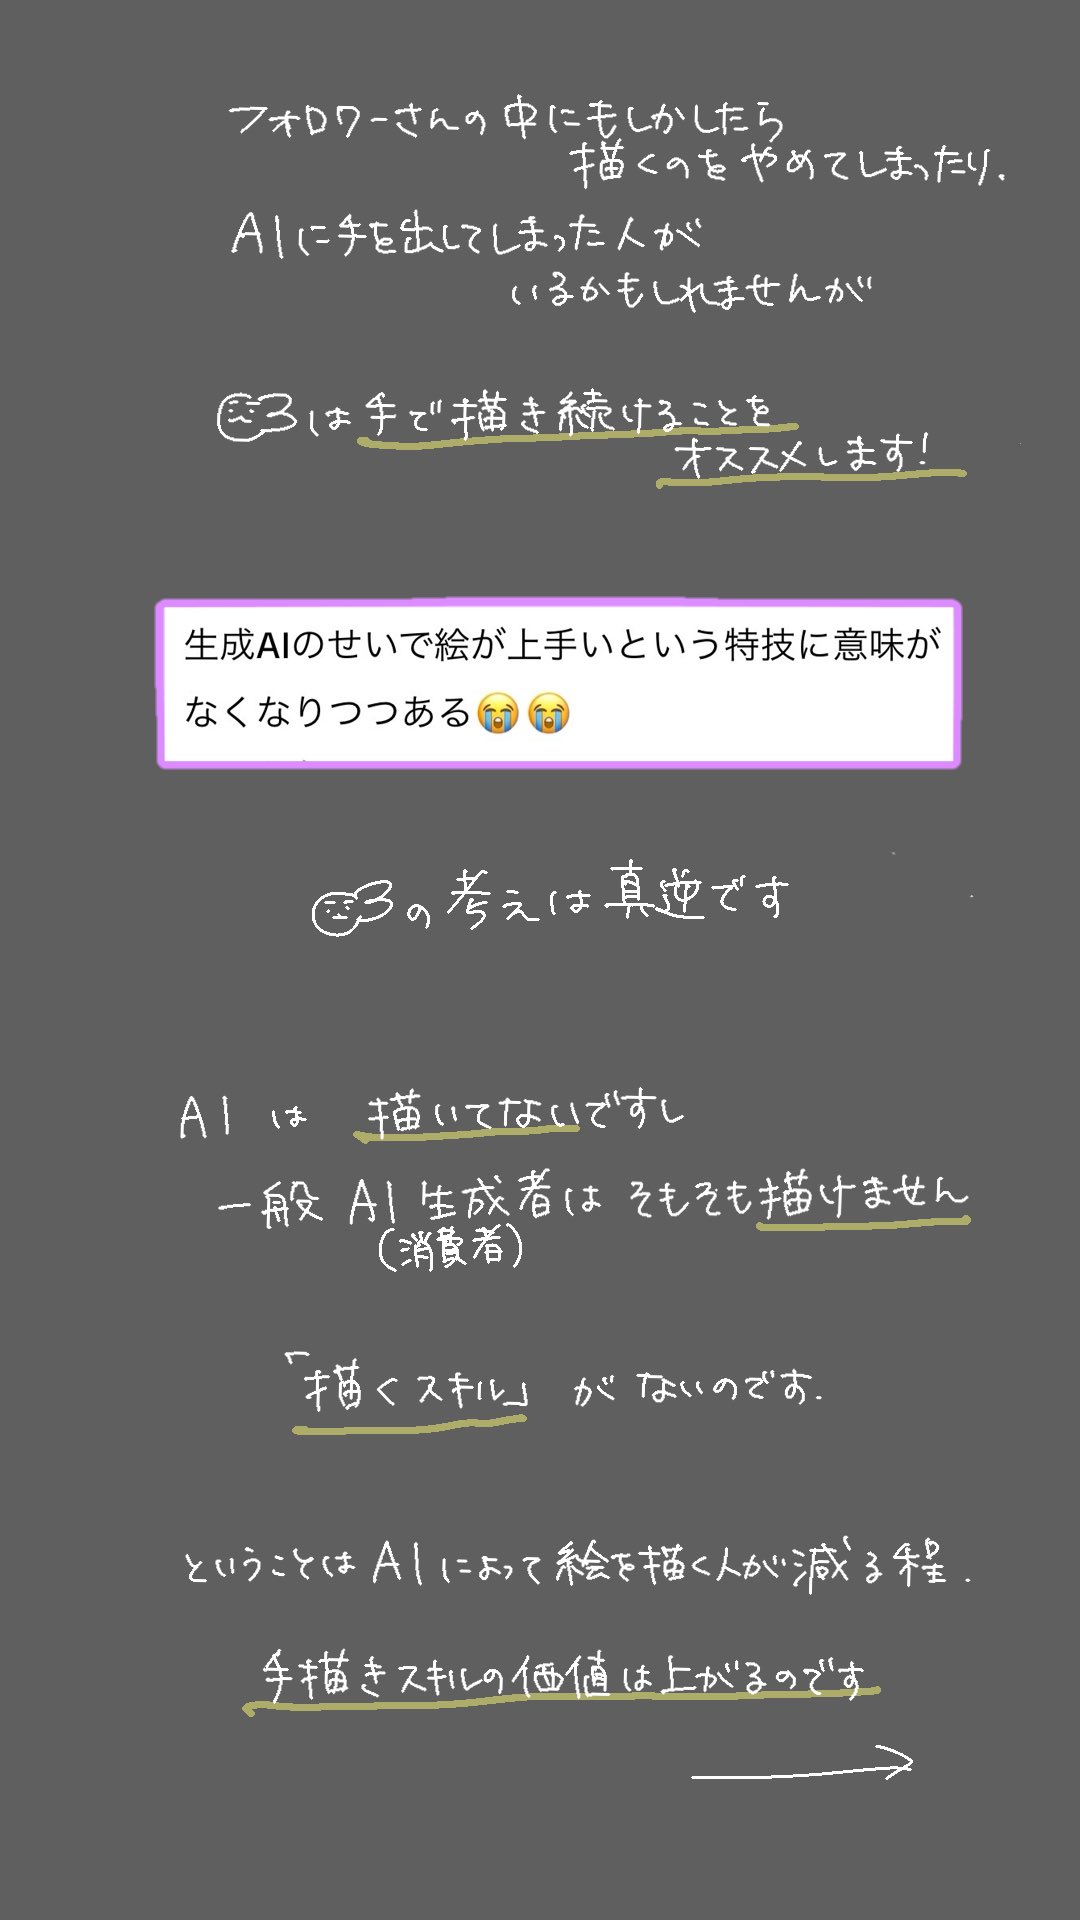 フォロワーさんの中にもしかしたら
描くのをやめてしまったり.
AIに手を出してしまった人が
いるかもしれませんが
は手で描き続けることを
オススメします!
生成AIのせいで絵が上手いという特技に意味が
なくなりつつある😭😭
の考えは真逆です
AIは 描いてないですし
一般 AI生成者は そもそも描けません
(消費者)
「描くスキル」がないのです.
ということはAIによって絵を描く人が減る程.
手描きスキルの価値は上がるのです